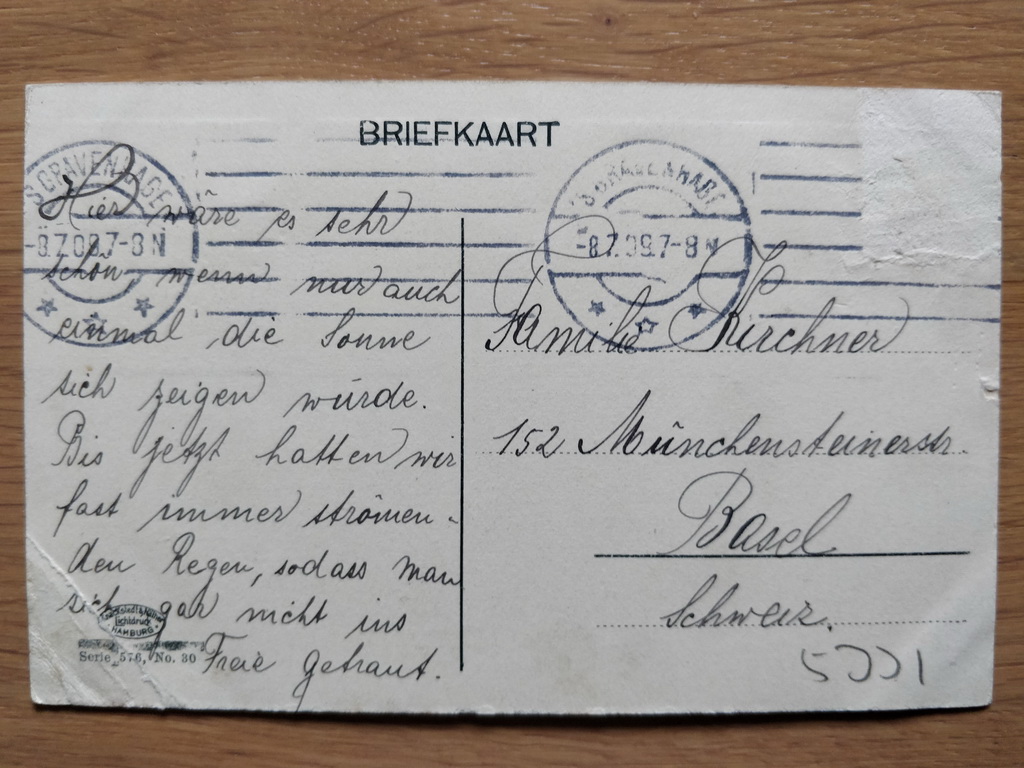 BRIEFKAART
'S GRAVENHAGE
-8.7.09.7-8 N
'S GRAVENHAGE
-8.7.09.7-8 N
Hier wäre es sehr
schön, wenn nur auch
einmal die Sonne
sich zeigen würde.
Bis jetzt hatten wir
fast immer strömen-
den Regen, sodass man
sich gar nicht ins
Freie getraut.
Lichtdruck
HAMBURG
Serie 576, No. 30
Familie Kirchner
152 Münchensteinerstr.
Basel
Schweiz.